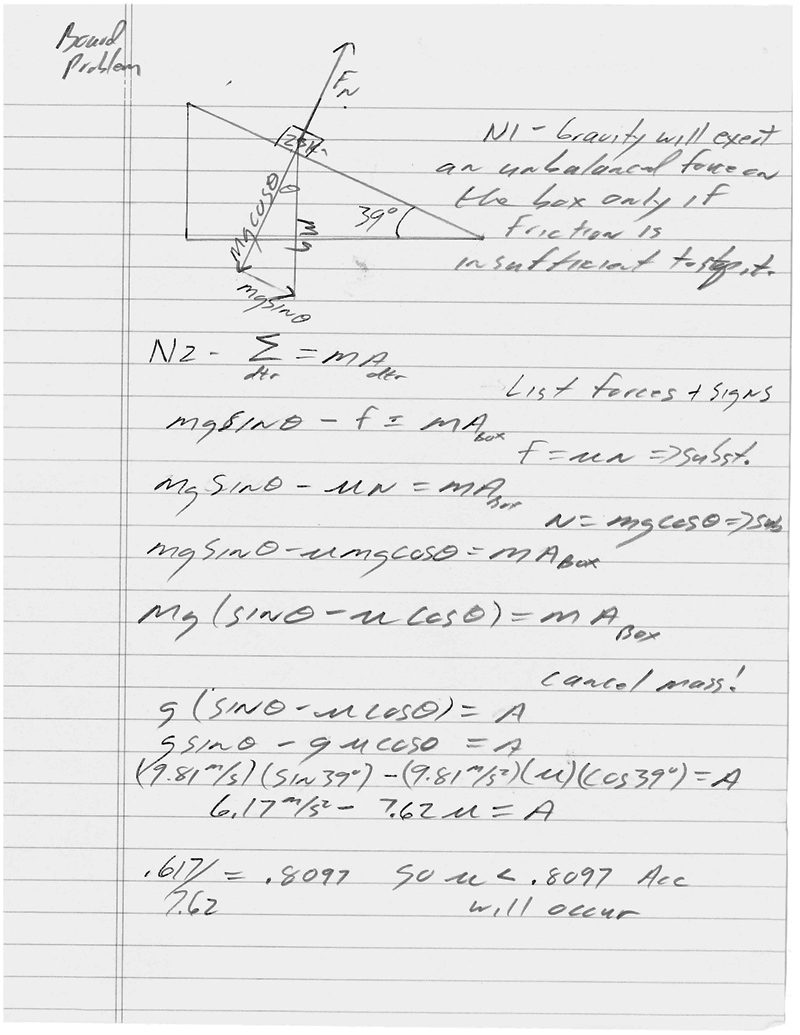 Board
Problem
F_N
25K
θ
39°
mg
mgcosθ
mgsinθ
N1 - Gravity will exert
an unbalanced force on
the box only if
friction is
insufficient to stop it.
N2 - Σ_dtr = mA_dtr
List forces + signs
mg sinθ - f = mA_Box
f = μN => subst.
mg sinθ - μN = mA_Box
N = mg cosθ => sub
mg sinθ - μmg cosθ = mA_Box
Mg (sinθ - μ cosθ) = mA_Box
cancel mass!
g (sinθ - μ cosθ) = A
g sinθ - g μ cosθ = A
(9.81 m/s)(sin 39°) - (9.81 m/s²)(μ)(cos 39°) = A
6.17 m/s² - 7.62 μ = A
.617/7.62 = .8097 so μ < .8097 Acc
will occur